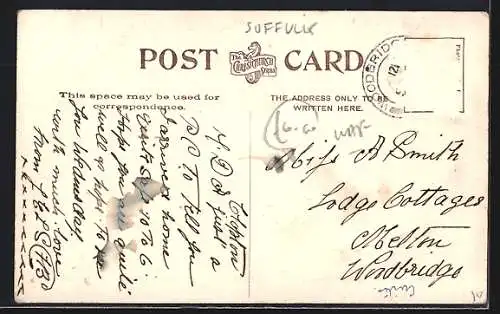 SUFFOLK
POST CARD
The
CHRISTCHURCH
Series
WOODBRIDGE
This space may be used for
correspondence.
THE ADDRESS ONLY TO BE
WRITTEN HERE.
Clopton
My D d just a
PC to tell you
I arrived home
quite safe 10 to 6.
Hope you are quite
well hope to see
you Wednesday
with much love
from
xxxxxxxx
Miss A Smith
Lodge Cottages
Melton
Woodbridge